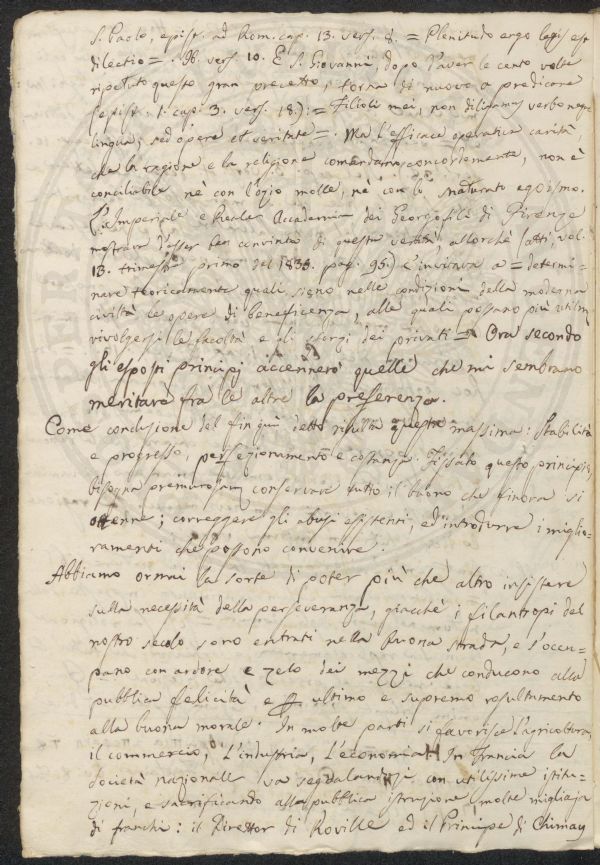 S. Paolo, epist. ad Rom. cap. 13. vers. 8. = Plenitudo ergo legis est
dilectio =. Ib. vers. 10. E S. Giovanni, dopo l'aver le cento volte
ripetuto questo gran precetto, torna di nuovo a predicare
(epist. 1. cap. 3. vers. 18.): = Filioli mei, non diligamus verbo neque
lingua, sed opere et veritate =. Ma l'efficace operativa carità,
che la ragione e la religione comandano concordemente, non è
conciliabile nè con l'ozio molle, nè con lo snaturato egoismo.
L'Imperiale e Reale Accademia dei Georgofili di Firenze
mostrava d'esser ben convinta di queste verità, allorchè (atti, vol.
13. trimestre primo del 1835. pag. 95.) c'invitava a = determi-
nare teoricamente quali siano nelle condizioni della moderna
civiltà le opere di beneficenza, alle quali possano più utilm.
rivolgersi le facoltà e gli sforzi dei privati =. Ora secondo
gli esposti principj accennerò quelle che mi sembrano
meritare fra le altre la preferenza.
Come conclusione del fin quì detto risulta questa massima: Stabilità
e progresso, perfezionamento e costanza. Fissato questo principio,
bisogna premurosam. conservare tutto il buono che finora si
ottenne; correggere gli abusi esistenti, ed introdurre i miglio-
ramenti che possono convenire.
Abbiamo ormai la sorte di poter più che altro insistere
sulla necessità della perseveranza, giacchè i filantropi del
nostro secolo sono entrati nella buona strada, e s'occu-
pano con ardore e zelo dei mezzi che conducono alla
pubblica felicità e ultimo e supremo resultamento
alla buona morale. In molte parti si favorisce l'agricoltura,
il commercio, l'industria, l'economia. In Francia la
Società nazionale va segnalandosi con utilissime istitu-
zioni, e sacrificando alla pubblica istruzione molte migliaja
di franchi: il Direttor di Roville ed il Principe di Chimay